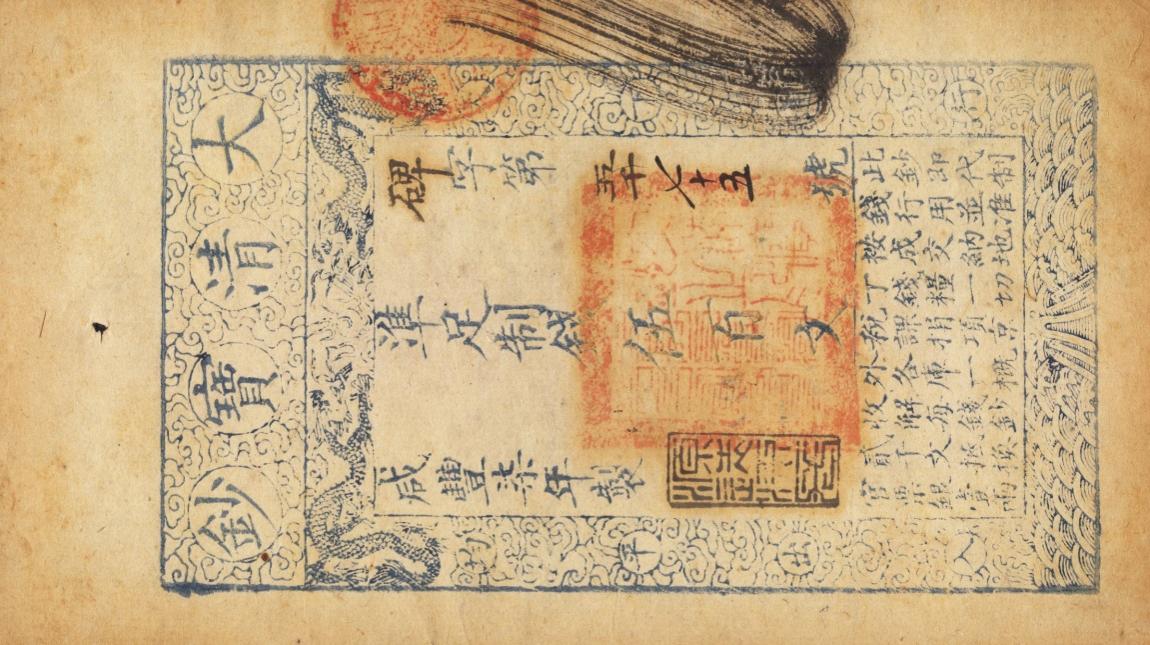 大清寶鈔
碑字第五千七十五號
準足制錢伍百文
咸豐柒年製
行
均平出入
此鈔即代制
錢行用並准
按成交納地
丁錢糧一切
稅課捐項京
外各庫一概
收解每錢鈔
貳千文抵換
官票銀壹兩